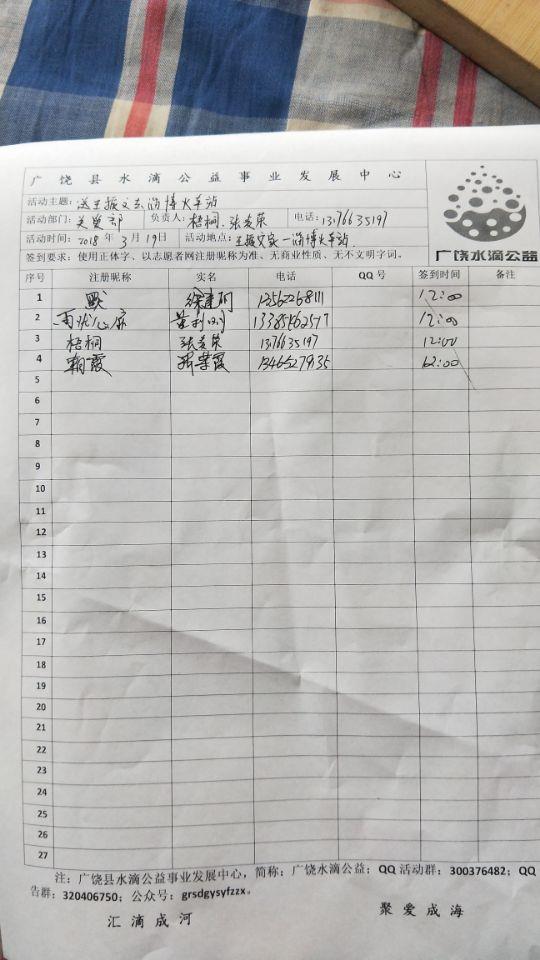 广饶县水滴公益事业发展中心
活动主题: 送王振文去淄博火车站
活动部门: 关爱部 负责人: 梧桐. 张爱荣 电话:
活动时间: 2018 年 3 月 19 日 活动地点: 王振文家一淄博火车站.
广饶水滴公益
签到要求: 使用正体字、以志愿者网注册昵称为准、无商业性质、无不文明字词。
序号 注册昵称 实名 电话 QQ 号 签到时间 备注
1 默 13562268111 12:00
2 雨状心扉 13385462517 12:00
3 梧桐 张爱荣 12:00
4 朝霞 13465279135 12:00
5
6
7
8
9
10
11
12
13
14
15
16
17
18
19
20
21
22
23
24
25
26
27
注: 广饶县水滴公益事业发展中心, 简称: 广饶水滴公益; QQ 活动群: 300376482; QQ
告群: 320406750; 公众号: grsdgysyfzzx。
汇滴成河 聚爱成海